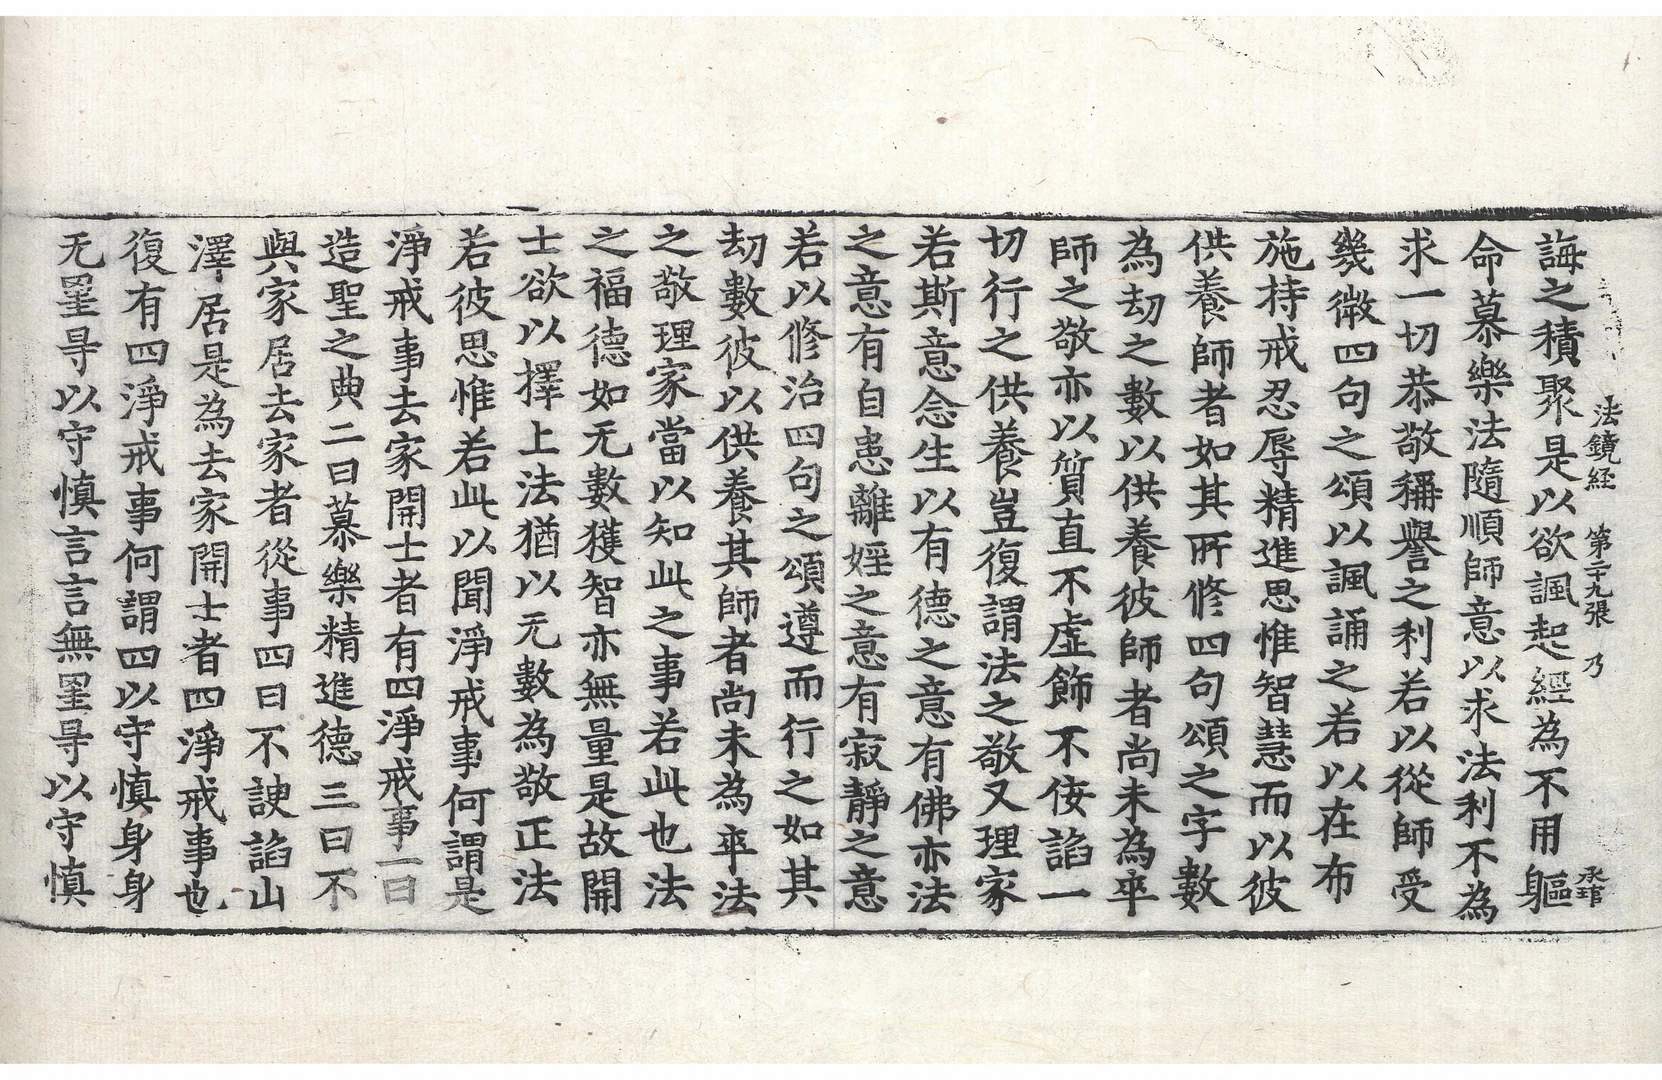 法鏡経 第二十九張 乃
誨之積聚是以欲諷起經為不用軀
命慕樂法隨順師意以求法利不為
求一切恭敬稱譽之利若以從師受
幾微四句之頌以諷誦之若以在布
施持戒忍辱精進思惟智慧而以彼
供養師者如其所修四句頌之字數
為劫之數以供養彼師者尚未為卒
師之敬亦以質直不虛飾不侫諂一
切行之供養豈復謂法之敬又理家
若斯意念生以有德之意有佛亦法
之意有自恚離婬之意有寂靜之意
若以修治四句之頌遵而行之如其
劫數彼以供養其師者尚未為卒法
之敬理家當以知此之事若此也法
之福德如无數獲智亦無量是故開
士欲以擇上法猶以无數為敬正法
若彼思惟若此以聞淨戒事何謂是
淨戒事去家開士者有四淨戒事一曰
造聖之典二曰慕樂精進德三曰不
與家居去家者從事四曰不諛諂山
澤居是為去家開士者四淨戒事也
復有四淨戒事何謂四以守慎身身
无罣㝵以守慎言言無罣㝵以守慎